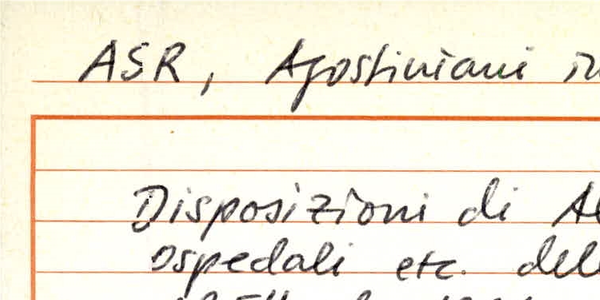 ASR, Agostiniani in
Disposizioni di
ospedali etc. dell